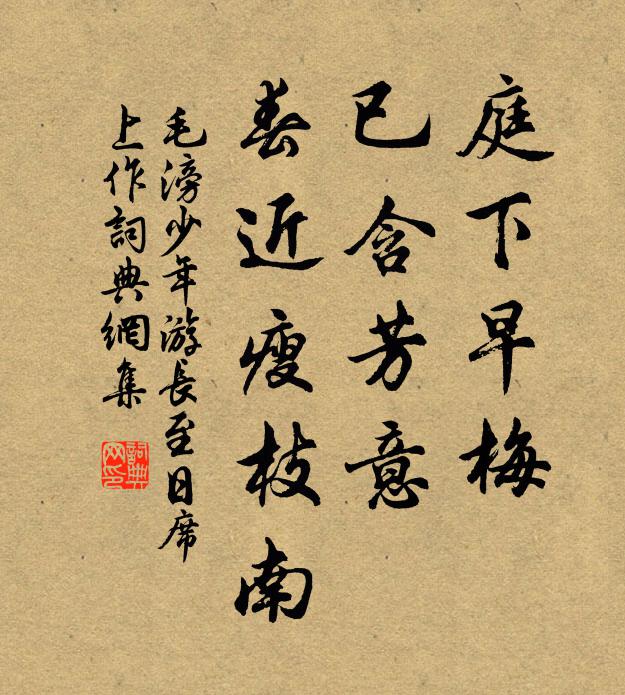 庭下早梅
已含芳意
春近瘦枝南
毛滂少年游長至日席
上作詞典網集
詞典
网印